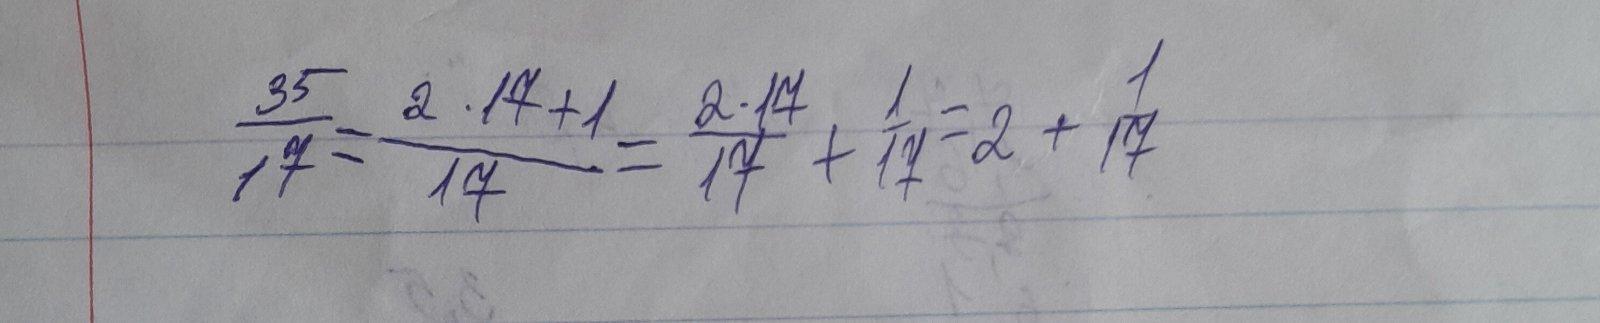 35/17 = (2·17+1)/17 = (2·17)/17 + 1/17 = 2 + 1/17